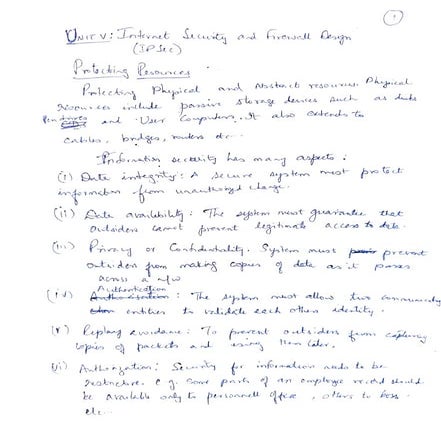 1
UNIT V: Internet Security and Firewall Design
(IPSec)
Protecting Resources
Protecting Physical and Abstract resources. Physical
resources include passive storage devices such as disks
and User Computers. It also extends to
cables, bridges, routers etc...
Information security has many aspects:
(i) Data integrity: A secure system must protect
information from unauthorized change.
(ii) Data availability: The system must guarantee that
outsiders cannot prevent legitimate access to data.
(iii) Privacy or Confidentiality: System must prevent
outsiders from making copies of data as it passes
across a n/w
Authentication
(iv) : The system must allow two communicating
entities to validate each other's identity.
(v) Replay avoidance: To prevent outsiders from capturing
copies of packets and using them later.
(vi) Authorization: Security for information needs to be
restrictive. e.g. some parts of an employee record should
be available only to personnel office, others to boss
etc...